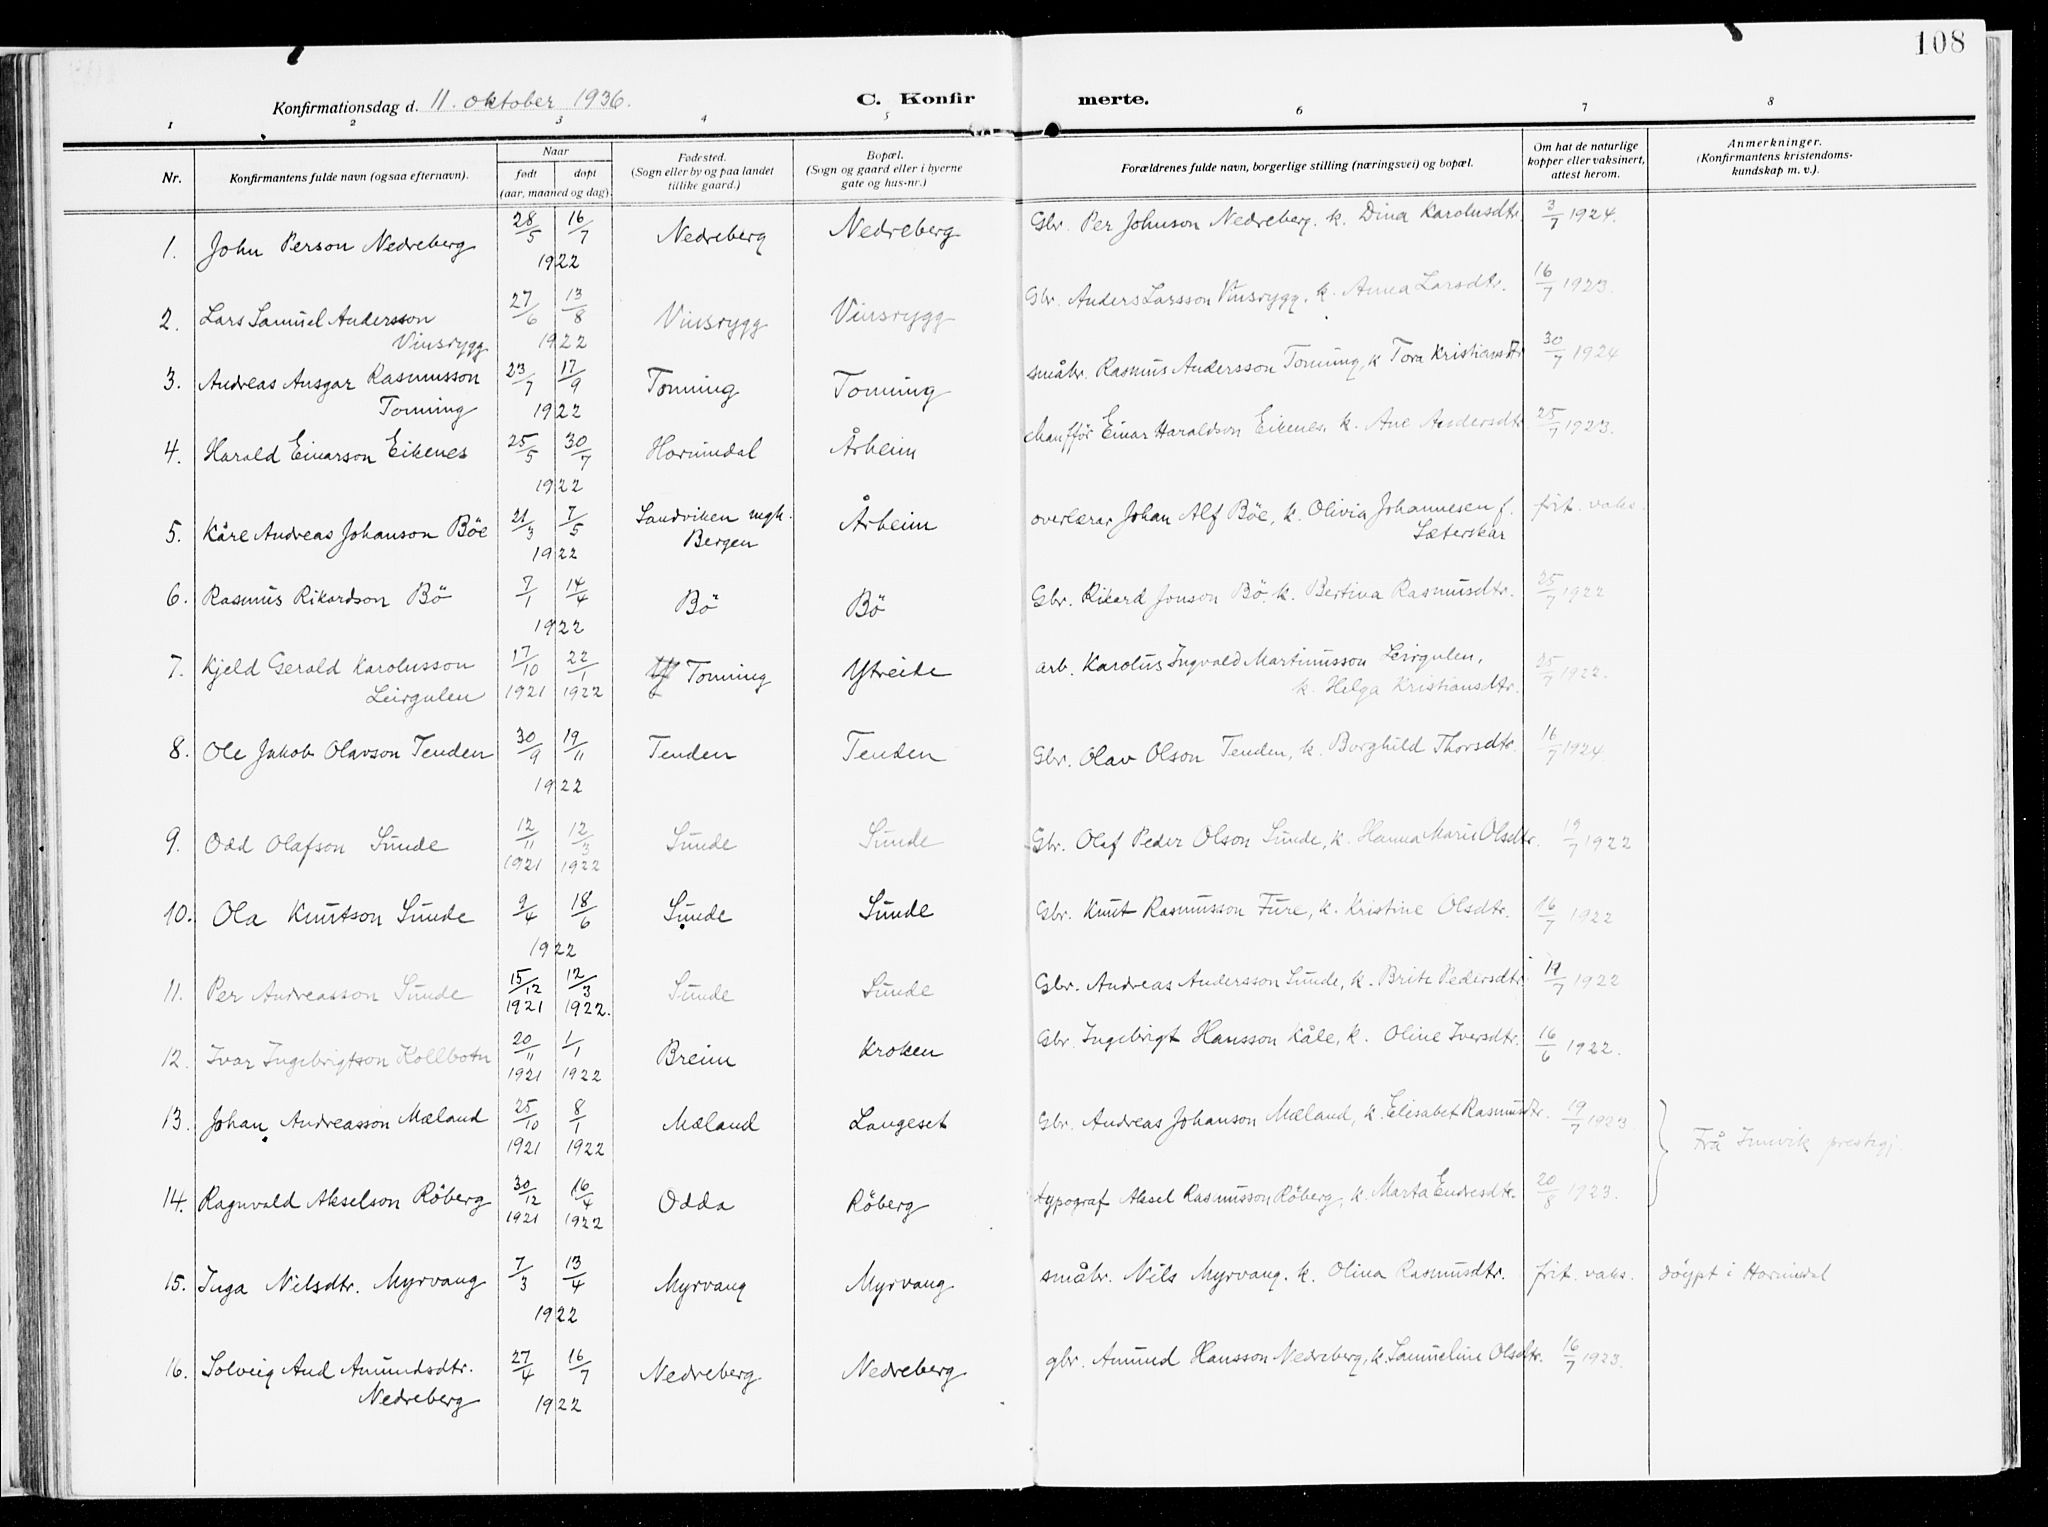 108
Konfirmationsdag d. 11. oktober 1936.
C. Konfirmerte.
1 2 3 4 5 6 7 8
Nr. Konfirmantens fulde navn (ogsaa efternavn). Naar født døpt (aar, maaned og dag). Fødested. (Sogn eller by og paa landet tillike gaard.) Bopæl. (Sogn og gaard eller i byerne gate og hus-nr.) Forældrenes fulde navn, borgerlige stilling (næringsvei) og bopæl. Om hat de naturlige kopper eller vaksinert, attest herom. Anmerkninger. (Konfirmantens kristendomskundskap m. v.).
1. John Person Nedreberg 28/5 16/7 1922 Nedreberg Nedreberg Gbr. Per Johnson Nedreberg. k. Dina Karolusdtr. 3/7 1924.
2. Lars Samuel Andersson Vinsrygg 27/6 13/8 1922 Vinsrygg Vinsrygg Gbr. Anders Larsson Vinsrygg. k. Anna Larsdtr. 16/7 1923.
3. Andreas Ansgar Rasmusson Tonning 23/7 17/9 1922 Tonning Tonning småbr. Rasmus Andersson Tonning, k Tora Kristiansdtr 30/7 1924
4. Harald Einarson Eikenes 25/5 30/7 1922 Hornindal Årheim chauffør Einar Haraldson Eikenes. k. Ane Andersdtr. 25/7 1923.
5. Kåre Andreas Johanson Böe 21/3 7/5 1922 Sandviken mgh. Bergen Årheim overlærar Johan Alf Böe, k. Olivia Johannesen f. Sæterskar frit. vaks.
6. Rasmus Rikardson Bö 7/1 14/4 1922 Bö Bö Gbr. Rikard Jonson Bö. k. Bertina Rasmusdtr. 25/7 1922
7. Kjeld Gerald Karolusson Leirgulen 17/10 1921 22/1 1922 Tonning Ytreeide arb. Karolus Ingvald Martinusson Leirgulen, k. Helga Kristiansdtr. 25/7 1922.
8. Ole Jakob Olavson Tenden 30/9 19/11 1922 Tenden Tenden Gbr. Olav Olson Tenden, k. Borghild Thorsdtr. 16/7 1924.
9. Odd Olafson Sunde 12/11 1921 12/3 1922 Sunde Sunde Gbr. Olaf Peder Olson Sunde, k. Hanna Marie Olsdtr. 19/7 1922
10. Ola Knutson Sunde 9/4 18/6 1922 Sunde Sunde Gbr. Knut Rasmusson Fure, k. Kristine Olsdtr. 16/7 1922
11. Per Andreasson Sunde 15/12 1921 12/3 1922. Sunde Sunde Gbr. Andreas Andersson Sunde, k. Brite Pedersdtr. 19/7 1922
12. Ivar Ingebrigtson Kollbotn 20/11 1921 1/1 1922 Breim Kroken Gbr. Ingebrigt Hansson Kåle, k. Oline Iversdtr. 16/6 1922.
13. Johan Andreasson Mæland 25/10 1921 8/1 1922 Mæland Langeset Gbr. Andreas Johanson Mæland, k. Elisabet Rasmusdtr. 19/7 1923
Frå Innvik prestegj.
14. Ragnvald Akselson Röberg 30/12 1921 16/4 1922 Odda Röberg typograf Aksel Rasmusson Röberg, k. Marta Endresdtr. 20/8 1923.
15. Inga Nilsdtr. Myrvang 7/3 13/4 1922 Myrvang Myrvang småbr. Nils Myrvang. k. Olina Rasmusdtr. frit. vaks. döypt i Hornindal
16. Solveig Aud Amundsdtr. Nedreberg 27/4 16/7 1922 Nedreberg Nedreberg gbr. Amund Hansson Nedreberg, k. Samueline Olsdtr. 16/7 1923.